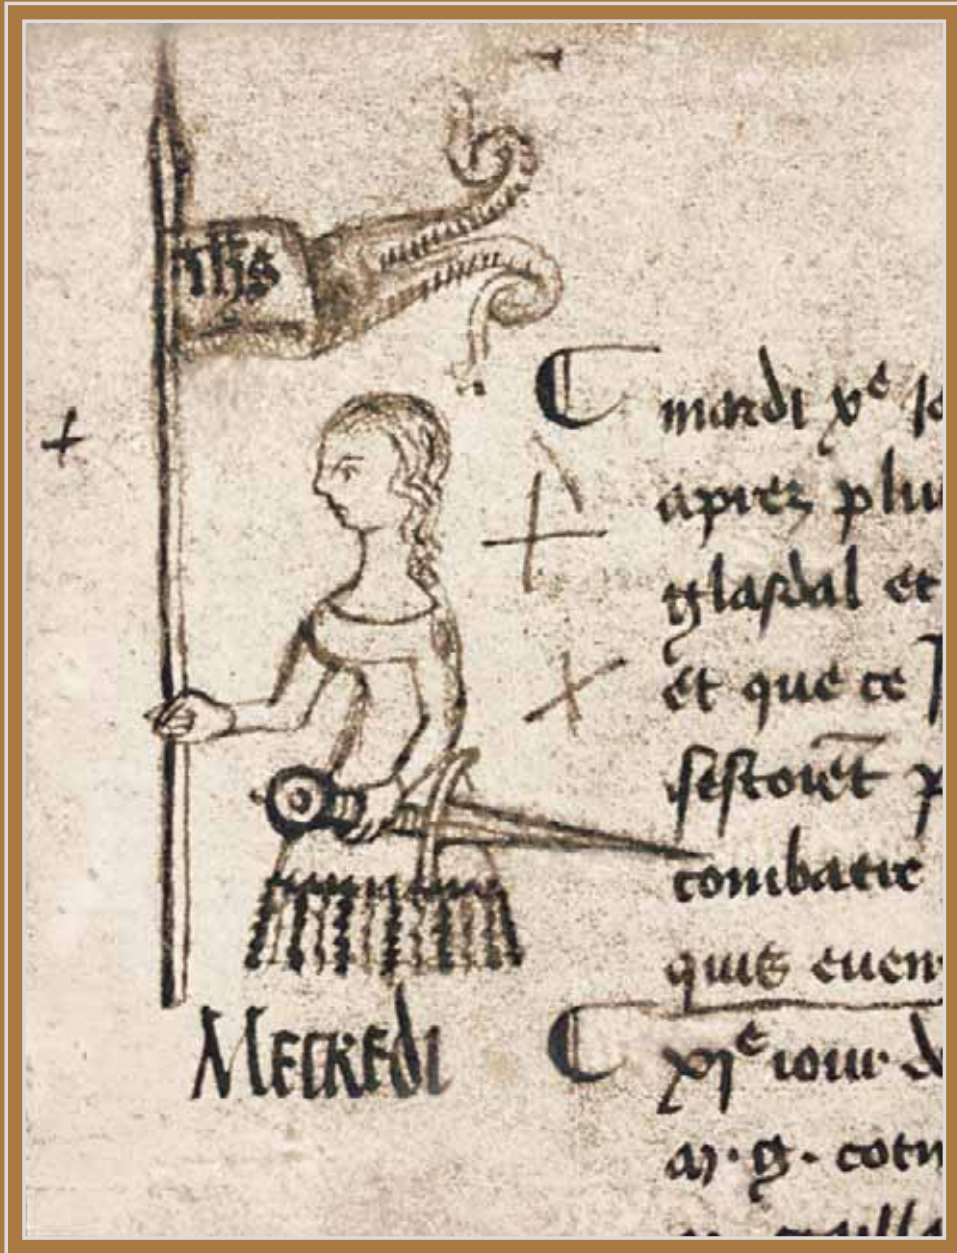 Ihs
mardi xᵉ jo
aprez plu
glasdal et
et que ce
sestoiēt p
combatre
quis euen
Mecredi
xjᵉ iour d
m. g. coti